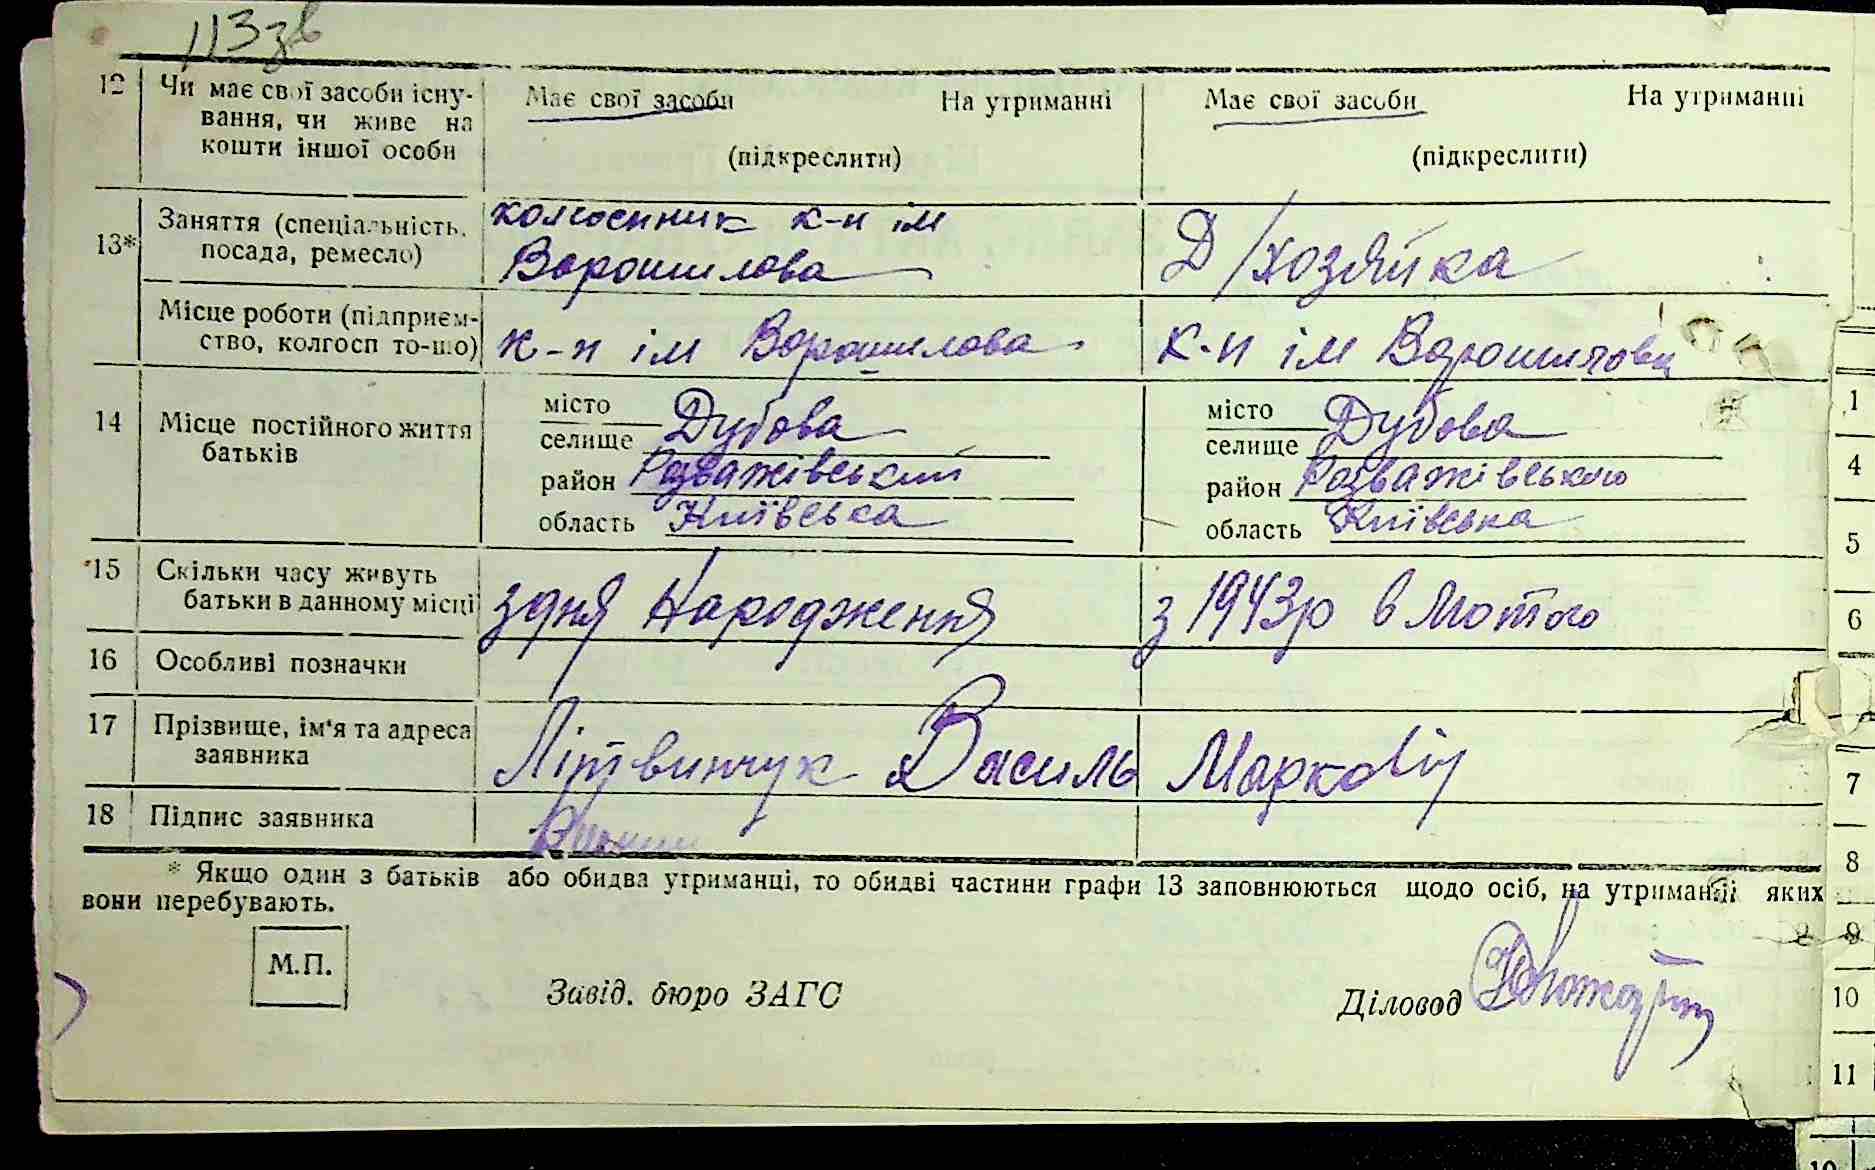 113зв
12 Чи має свої засоби існу- Має свої засоби На утриманні Має свої засоби На утриманні
вання, чи живе на
кошти іншої особи (підкреслити) (підкреслити)
13* Заняття (спеціальність, колгоспник к-п ім Д/хозяйка
посада, ремесло) Ворошилова
Місце роботи (підприєм- к-п ім Ворошилова к-п ім Ворошилова
ство, колгосп то-що)
14 Місце постійного життя місто Дубова місто Дубова
батьків селище селище
район Розважівський район Розважівського
область Київська область Київська
15 Скільки часу живуть з дня Народження з 1943р в Лютого
батьки в данному місці
16 Особливі позначки
17 Прізвище, ім'я та адреса Літвинчук Василь Маркович
заявника
18 Підпис заявника
* Якщо один з батьків або обидва утриманці, то обидві частини графи 13 заповнюються щодо осіб, на утриманні яких
вони перебувають.
М.П.
Завід. бюро ЗАГС Діловод
1
4
5
6
7
8
9
10
11